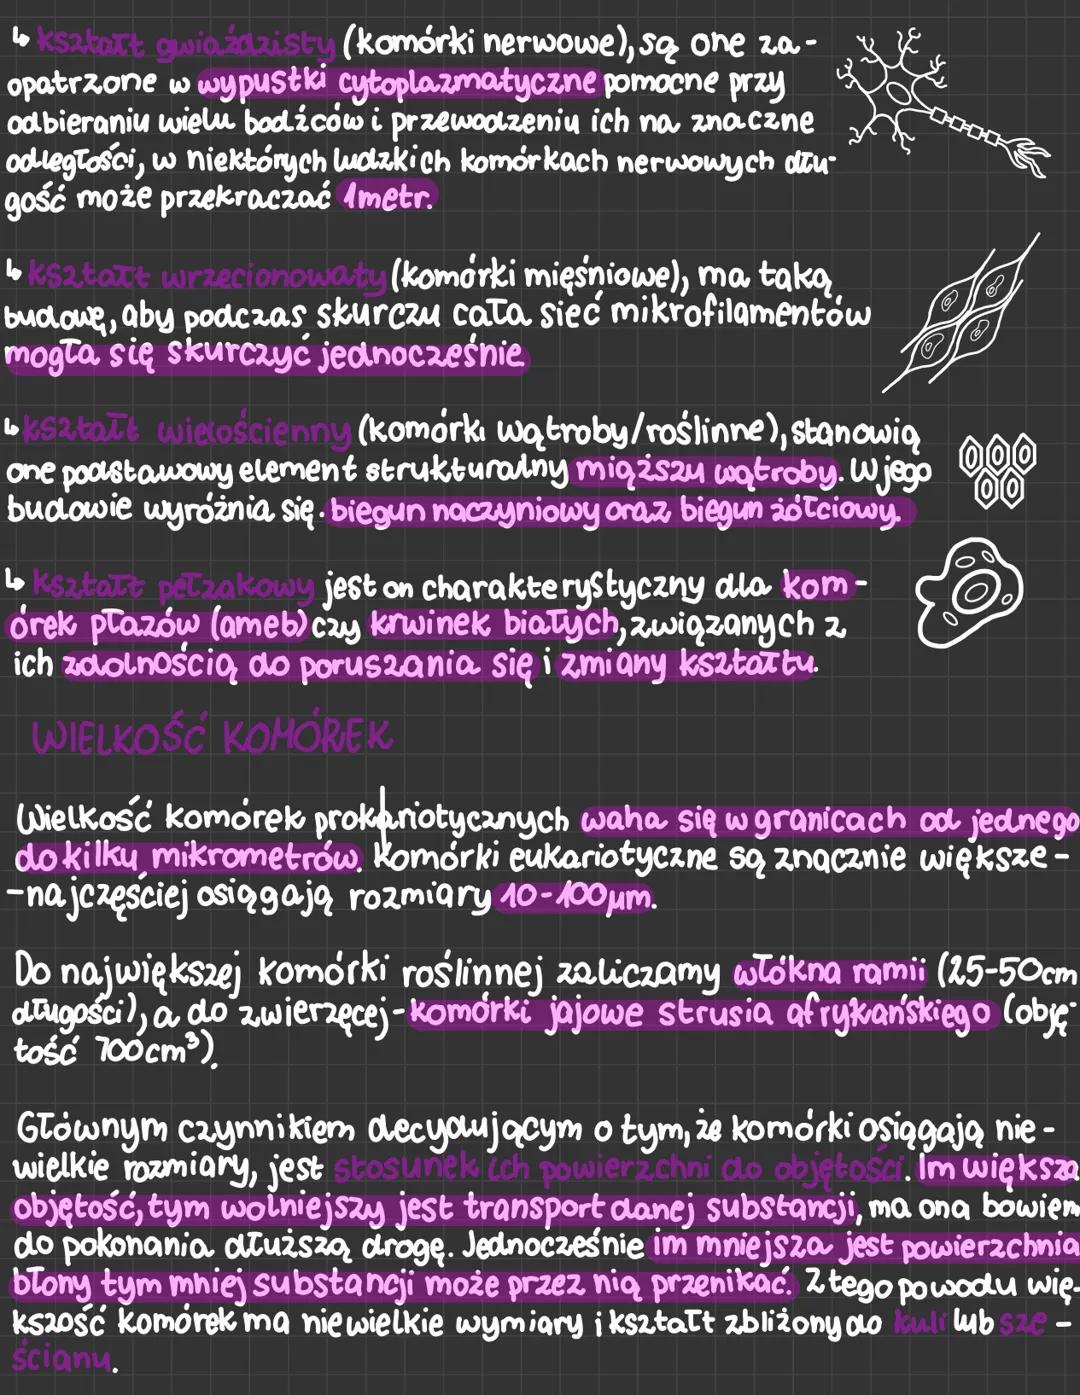 ↳ kształt gwiaździsty (komórki nerwowe), są one za-
opatrzone w wypustki cytoplazmatyczne pomocne przy
odbieraniu wielu bodźców i przewodzeniu ich na znaczne
odległości, w niektórych ludzkich komórkach nerwowych dłu-
gość może przekraczać 1metr.
↳ kształt wrzecionowaty (komórki mięśniowe), ma taką
budowę, aby podczas skurczu cała sieć mikrofilamentów
mogła się skurczyć jednocześnie
↳ kształt wielościenny (komórki wątroby/roślinne), stanowią
one podstawowy element strukturalny miąższu wątroby. W jego
budowie wyróżnia się. biegun naczyniowy oraz biegun żółciowy.
↳ kształt pełzakowy jest on charakterystyczny dla kom-
órek płazów (ameb) czy krwinek białych, związanych z
ich zdolnością do poruszania się i zmiany kształtu.
WIELKOŚĆ KOMÓREK
Wielkość komórek prokariotycznych waha się w granicach od jednego
do kilku mikrometrów. Komórki eukariotyczne są znacznie większe-
-najczęściej osiągają rozmiary 10-100µm.
Do największej komórki roślinnej zaliczamy włókna ramii (25-50cm
długości), a do zwierzęcej-komórki jajowe strusia afrykańskiego (obję-
tość 700cm³).
Głównym czynnikiem decydującym o tym, że komórki osiągają nie-
wielkie rozmiary, jest stosunek ich powierzchni do objętości. Im większa
objętość, tym wolniejszy jest transport danej substancji, ma ona bowiem
do pokonania dłuższą drogę. Jednocześnie im mniejsza jest powierzchnia
błony tym mniej substancji może przez nią przenikać. Z tego powodu wię-
kszość komórek ma niewielkie wymiary i kształt zbliżony do kuli lub sze-
ścianu.